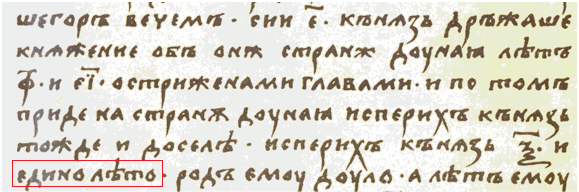 шегоръ вечемь · сии е҃ · кънѧзь дрьжаше
кнѧжение обь онѫ странѫ дѹнаꙗ лѣтъ
ф҃ · и еі҃ · остриженами главами · и по томь
приде на странѫ дѹнаꙗ исперихъ кънѧзь
тожде и доселѣ · исперихъ кънѧзь ѯ҃ · и
едино лѣто · родъ емѹ дѹло · а лѣтъ емѹ